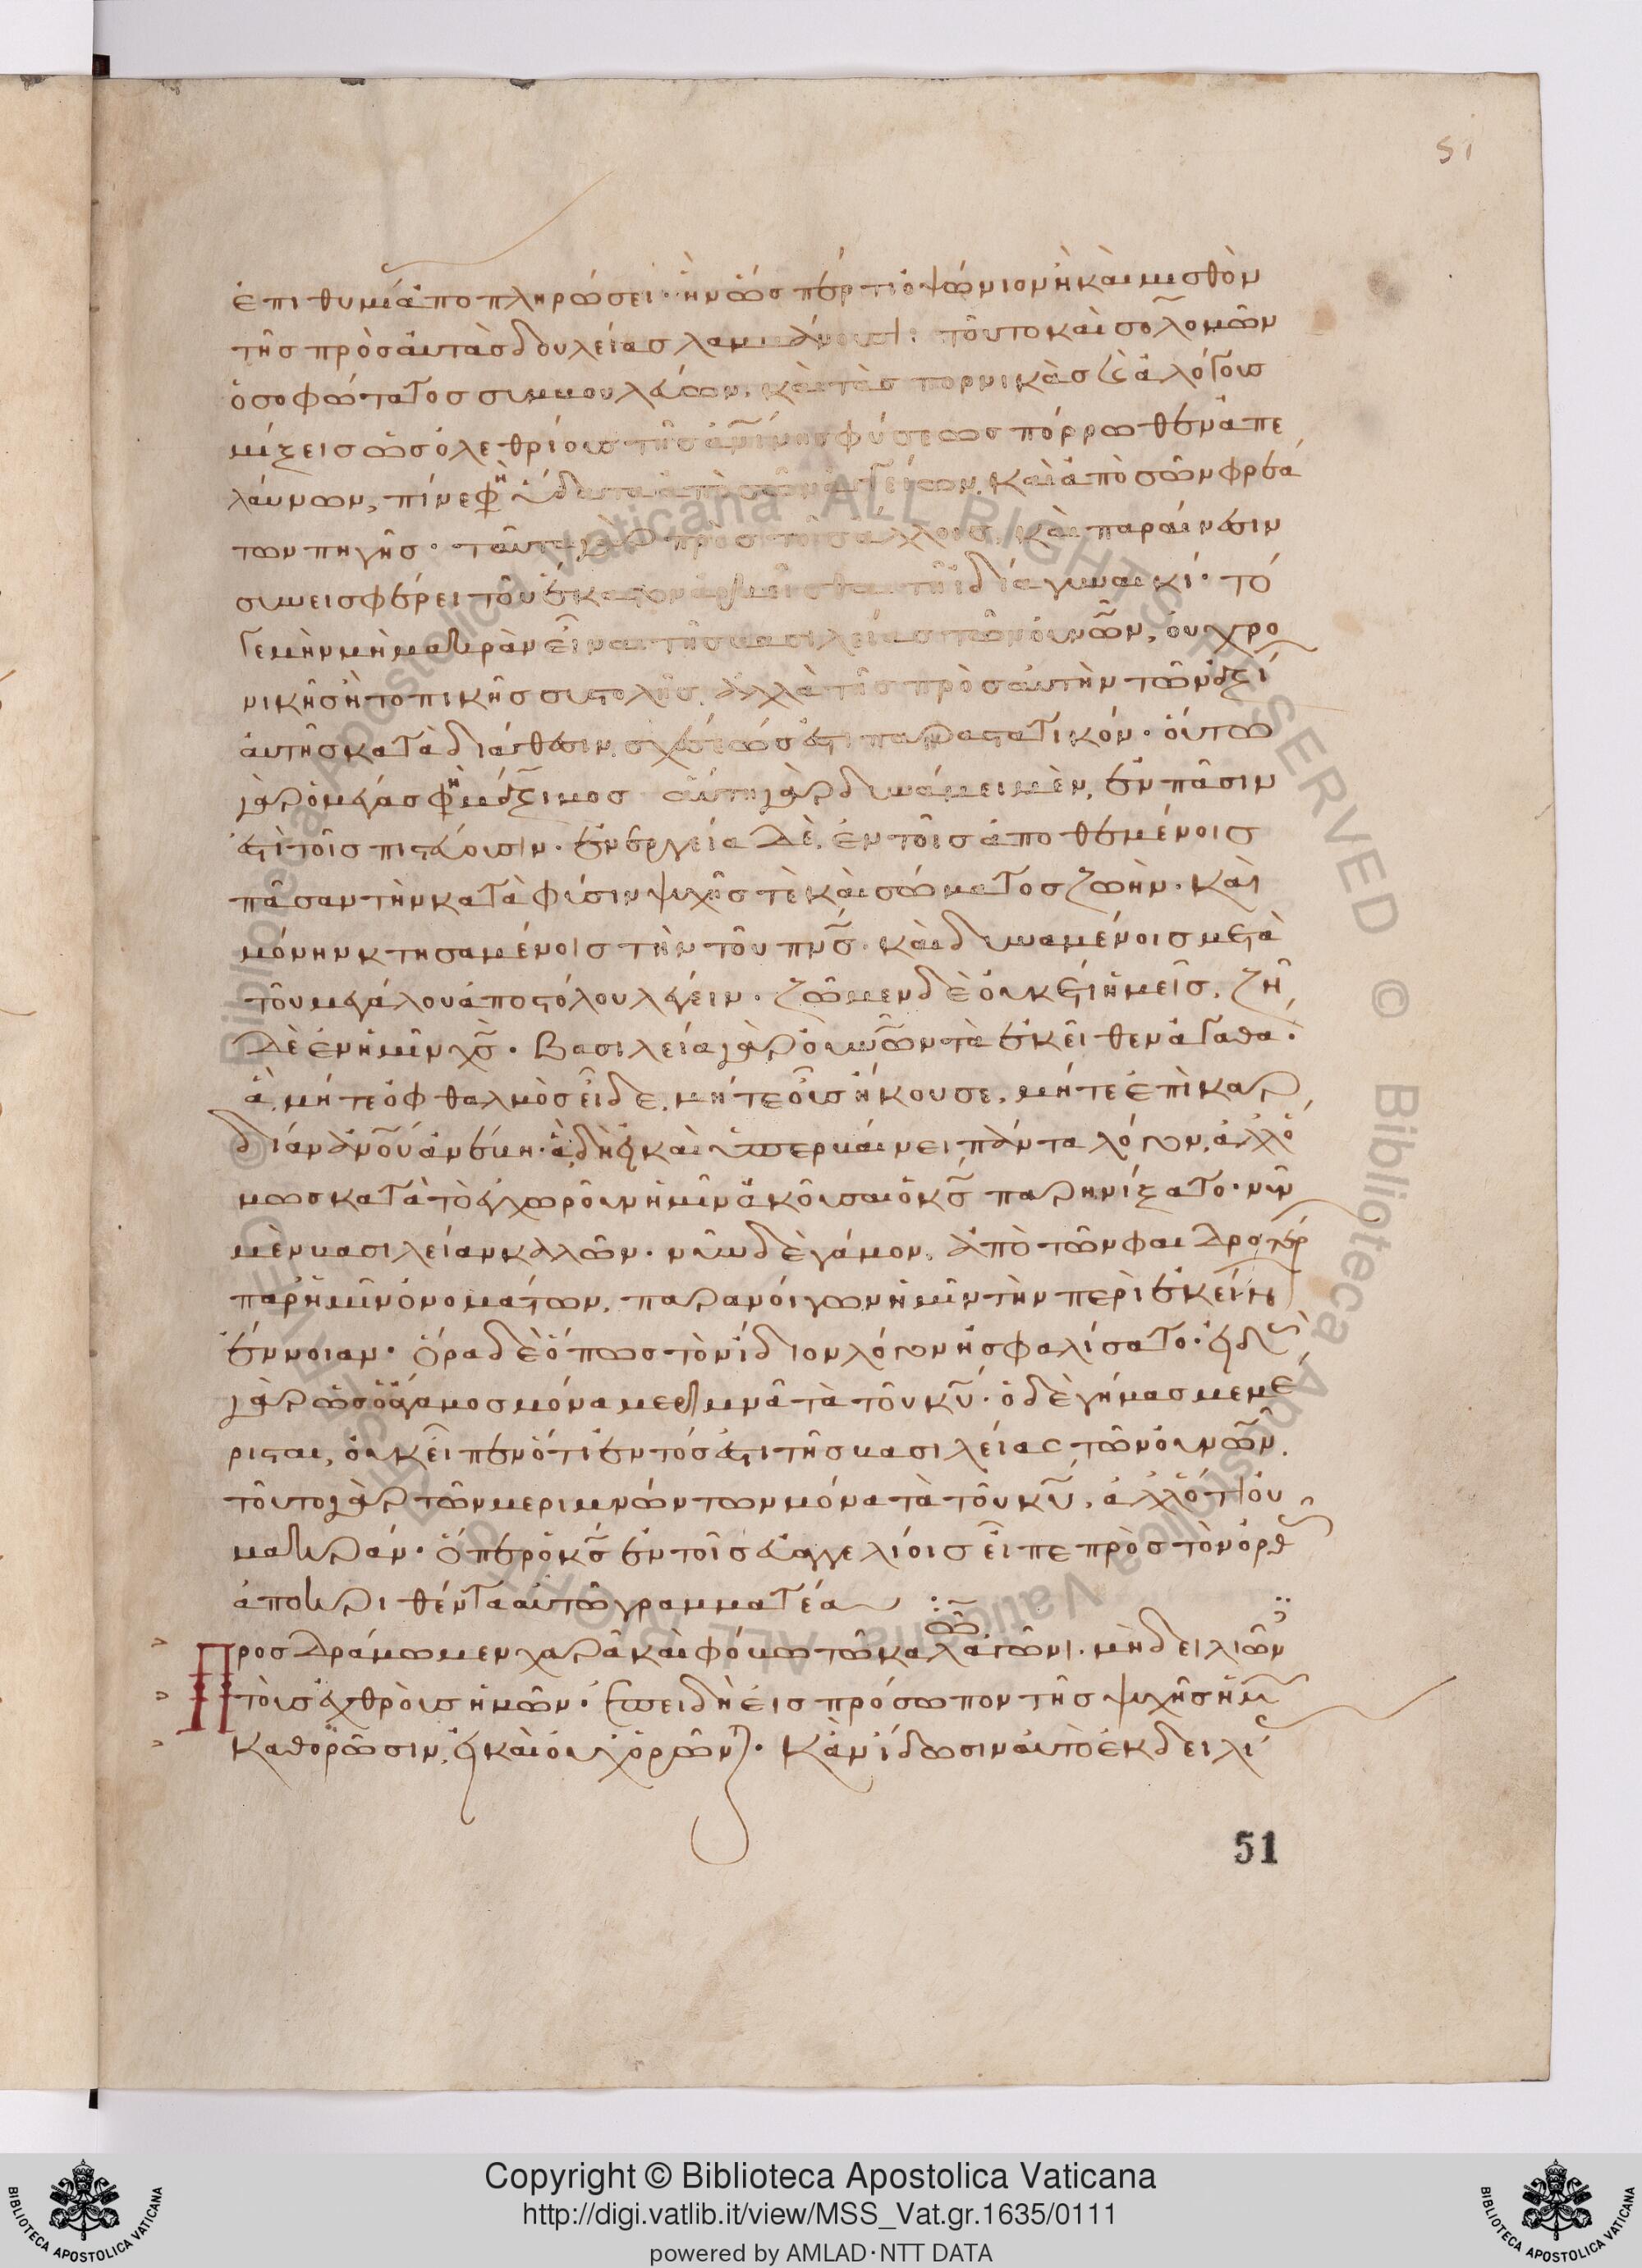 51
ἐπιθυμία ἀποπληρώσει· ἣν ὥσπερ τι ὀψώνιον ἢ καὶ μισθὸν
τῆς πρὸς αὐτὰς δουλείας λαμβάνουσι: τοῦτο καὶ σολομῶν
ὁ σοφώτατος συμβουλεύων, καὶ τὰς πορνικὰς καὶ ἀλόγους
μίξεις ὡς ὀλεθρίους τῆς φύσεως πόρρωθεν ἀπε
λαύνων, πῖνε φη ὕδατα ἀπὸ σῶν ἀγγείων, καὶ ἀπὸ σῶν φρεά
των πηγῆς· ταῦτα γὰρ πρὸς τοῖς ἄλλοις, καὶ παραίνεσιν
συνεισφέρει τοῦ ἕκαστον ἀρκεῖσθαι τῆ ἰδία γυναικί· τό
γε μὴν μὴ μακρὰν εἶναι τῆς βασιλείας τῶν οὐνῶν, οὐ χρο
νικῆς ἢ τοπικῆς συστολῆς, ἀλλὰ τῆς πρὸς αὐτὴν τῶν ἀξί
αὐτῆς κατὰ διάθεσιν, σχέσεώς ἐστι παραστατικόν· οὕτω
γὰρ ὁ μέγας φη μάξιμος αὕτη γὰρ δυνάμει μὲν, ἐν πᾶσιν
ἐστὶ τοῖς πιστεύουσιν· ἐνεργεία δὲ, ἐν τοῖς ἀποθεμένοις
πᾶσαν τὴν κατὰ φύσιν ψυχῆς τὲ καὶ σώματος ζωὴν· καὶ
μόνην κτησαμένοις τὴν τοῦ πνς· καὶ δυναμένοις μετὰ
τοῦ μεγάλου ἀποστόλου λέγειν· ζῶμεν δὲ οὐκέτι ἡμεῖς, ζῆ
δὲ ἐν ἡμῖν χς· βασιλεία γὰρ οὐνῶν τὰ ἐκεῖθεν ἀγαθα·
ἃ, μήτε ὀφθαλμὸς εἶδε, μήτε οὖς ἤκουσε, μήτε ἐπὶ καρ
δίαν ἀνου ἀνέβη· ἃ δὴ καὶ ὑπερβαίνει πάντα λόγον, ἀλλό
μως κατὰ τὸ ἐγχωροῦν ἡμῖν ἀκοῦσαι ὁ κς παρηνίξατο· νῦν
μὲν βασιλείαν καλῶν· νῦν δὲ γάμον, ἀπὸ τῶν φαιδροτέρ
παρ' ἡμῖν ὀνομάτων, παρανοίγων ἡμῖν τὴν περὶ ἐκείνων
ἔννοιαν· ὅρα δὲ ὅπως τὸν ἴδιον λόγον ἠσφαλίσατο·
γὰρ ὡς ὁ ἄγαμος μόνα μεριμνᾶ τὰ τοῦ κυ· ὁ δὲ γήμας μεμέ
ρισται, οὐκ εἶπεν ὅτι ἐντός ἐστι τῆς βασιλείας τῶν οὐνῶν,
τοῦτο γὰρ τῶν μεριμνώντων μόνα τὰ τοῦ κυ, ἀλλ' ὅτι οὐ
μακράν· ὅπερ ὁ κς ἐν τοῖς εὐαγγελίοις εἶπε πρὸς τὸν ὀρθ
ἀποκριθέντα αὐτῶ γραμματέα :
Προσδράμωμεν χαρᾶ καὶ φόβω τῶ καλοῦντι ἀγῶνι· μὴ δειλιῶν
τοὺς ἐχθροὺς ἡμῶν· ἐπειδὴ εἰς πρόσωπον τῆς ψυχῆς ἡμ
καθορῶσιν, εἰ καὶ οὐχ ὁρῶνται· κἀν ἴδωσιν αὐτὸ ἐκ δειλι
51
© Biblioteca Apostolica Vaticana ALL RIGHTS RESERVED
Copyright © Biblioteca Apostolica Vaticana
http://digi.vatlib.it/view/MSS_Vat.gr.1635/0111
powered by AMLAD·NTT DATA
BIBLIOTECA APOSTOLICA VATICANA
BIBLIOTECA APOSTOLICA VATICANA